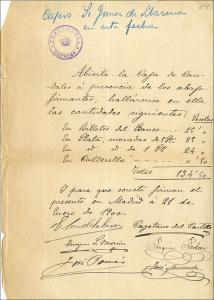 Cajero Sr Gomez de Llarena
en esta fecha
Abierta la Caja de Cau-
dales á presencia de los abajo
firmantes, halláronse en ella
las cantidades siguientes: Pesetas
En Billetes del Banco 25 "
En Plata, monedas de 5 Pt. 85 "
En id. id. de 1 Pt 24 "
En Calderilla " 50
Total 134'50
Y para que conste firman el
presente en Madrid á 21 de
Enero de 1900.
Cayetano del Castillo
José Tomás
José